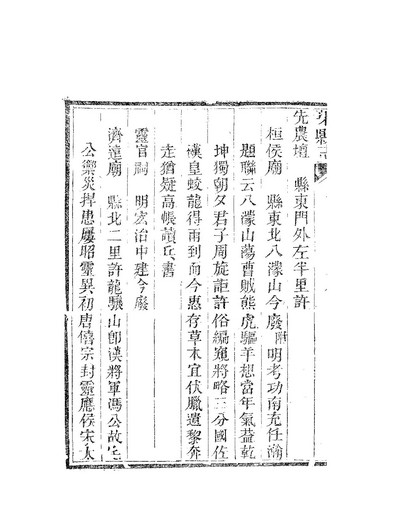 渠縣志
先農壇　縣東門外左半里許
桓侯廟　縣東北八濛山今廢附明考功南充任瀚
題聯云八濛山蕩曹賊熊虎驅羊想當年氣蓋乾
坤獨朝夕君子周旋詎許俗編窺將略三分國佐
漢皇蛟龍得雨到而今惠存草木宜伏臘遺黎奔
走猶疑高帳讀兵書
靈官祠　明宏治中建今廢
濟遠廟　縣北二里許龍驤山卽漢將軍馮公故宅
公禦災捍患屢昭靈異初唐僖宗封靈應侯宋太